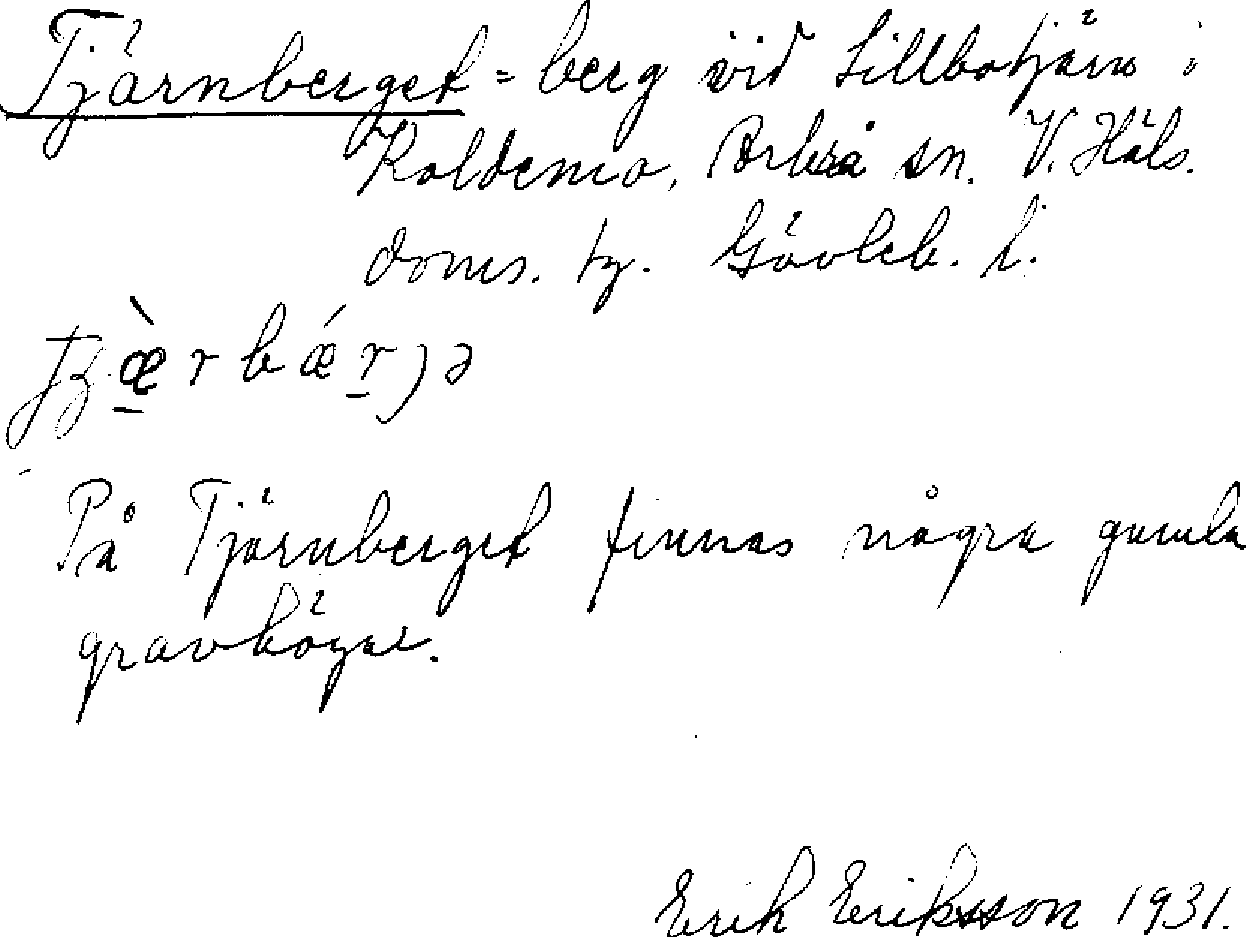 Tjärnberget = berg vid Lillbotjärn i
Koldemo, Arbrå sn. V. Häls.
doms. tg. Gävleb. l.
På Tjärnberget finnas några gamla
gravhögar.
Erik Eriksson 1931.